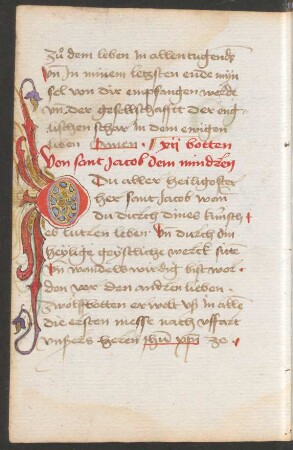 Zů dem leben In allen tugenden
vn In minem letzsten ende min
sel von dir empfangen werde
vn der gesellschafft der eng
lischen schar in dem ewigen
leben Amen · xij botten
Von sant Jacob dem mindren
O Du aller heiligoster
her sant Jacob wan
du durch dines künsch
es leben Vn durch din
heylige geystliche werck
In wandels wirdig bist wor
den vor den andren lieben
zwölfbotten er welt vß In alle
die ersten messe nach vffart
vnßers heren jhu xpi ze